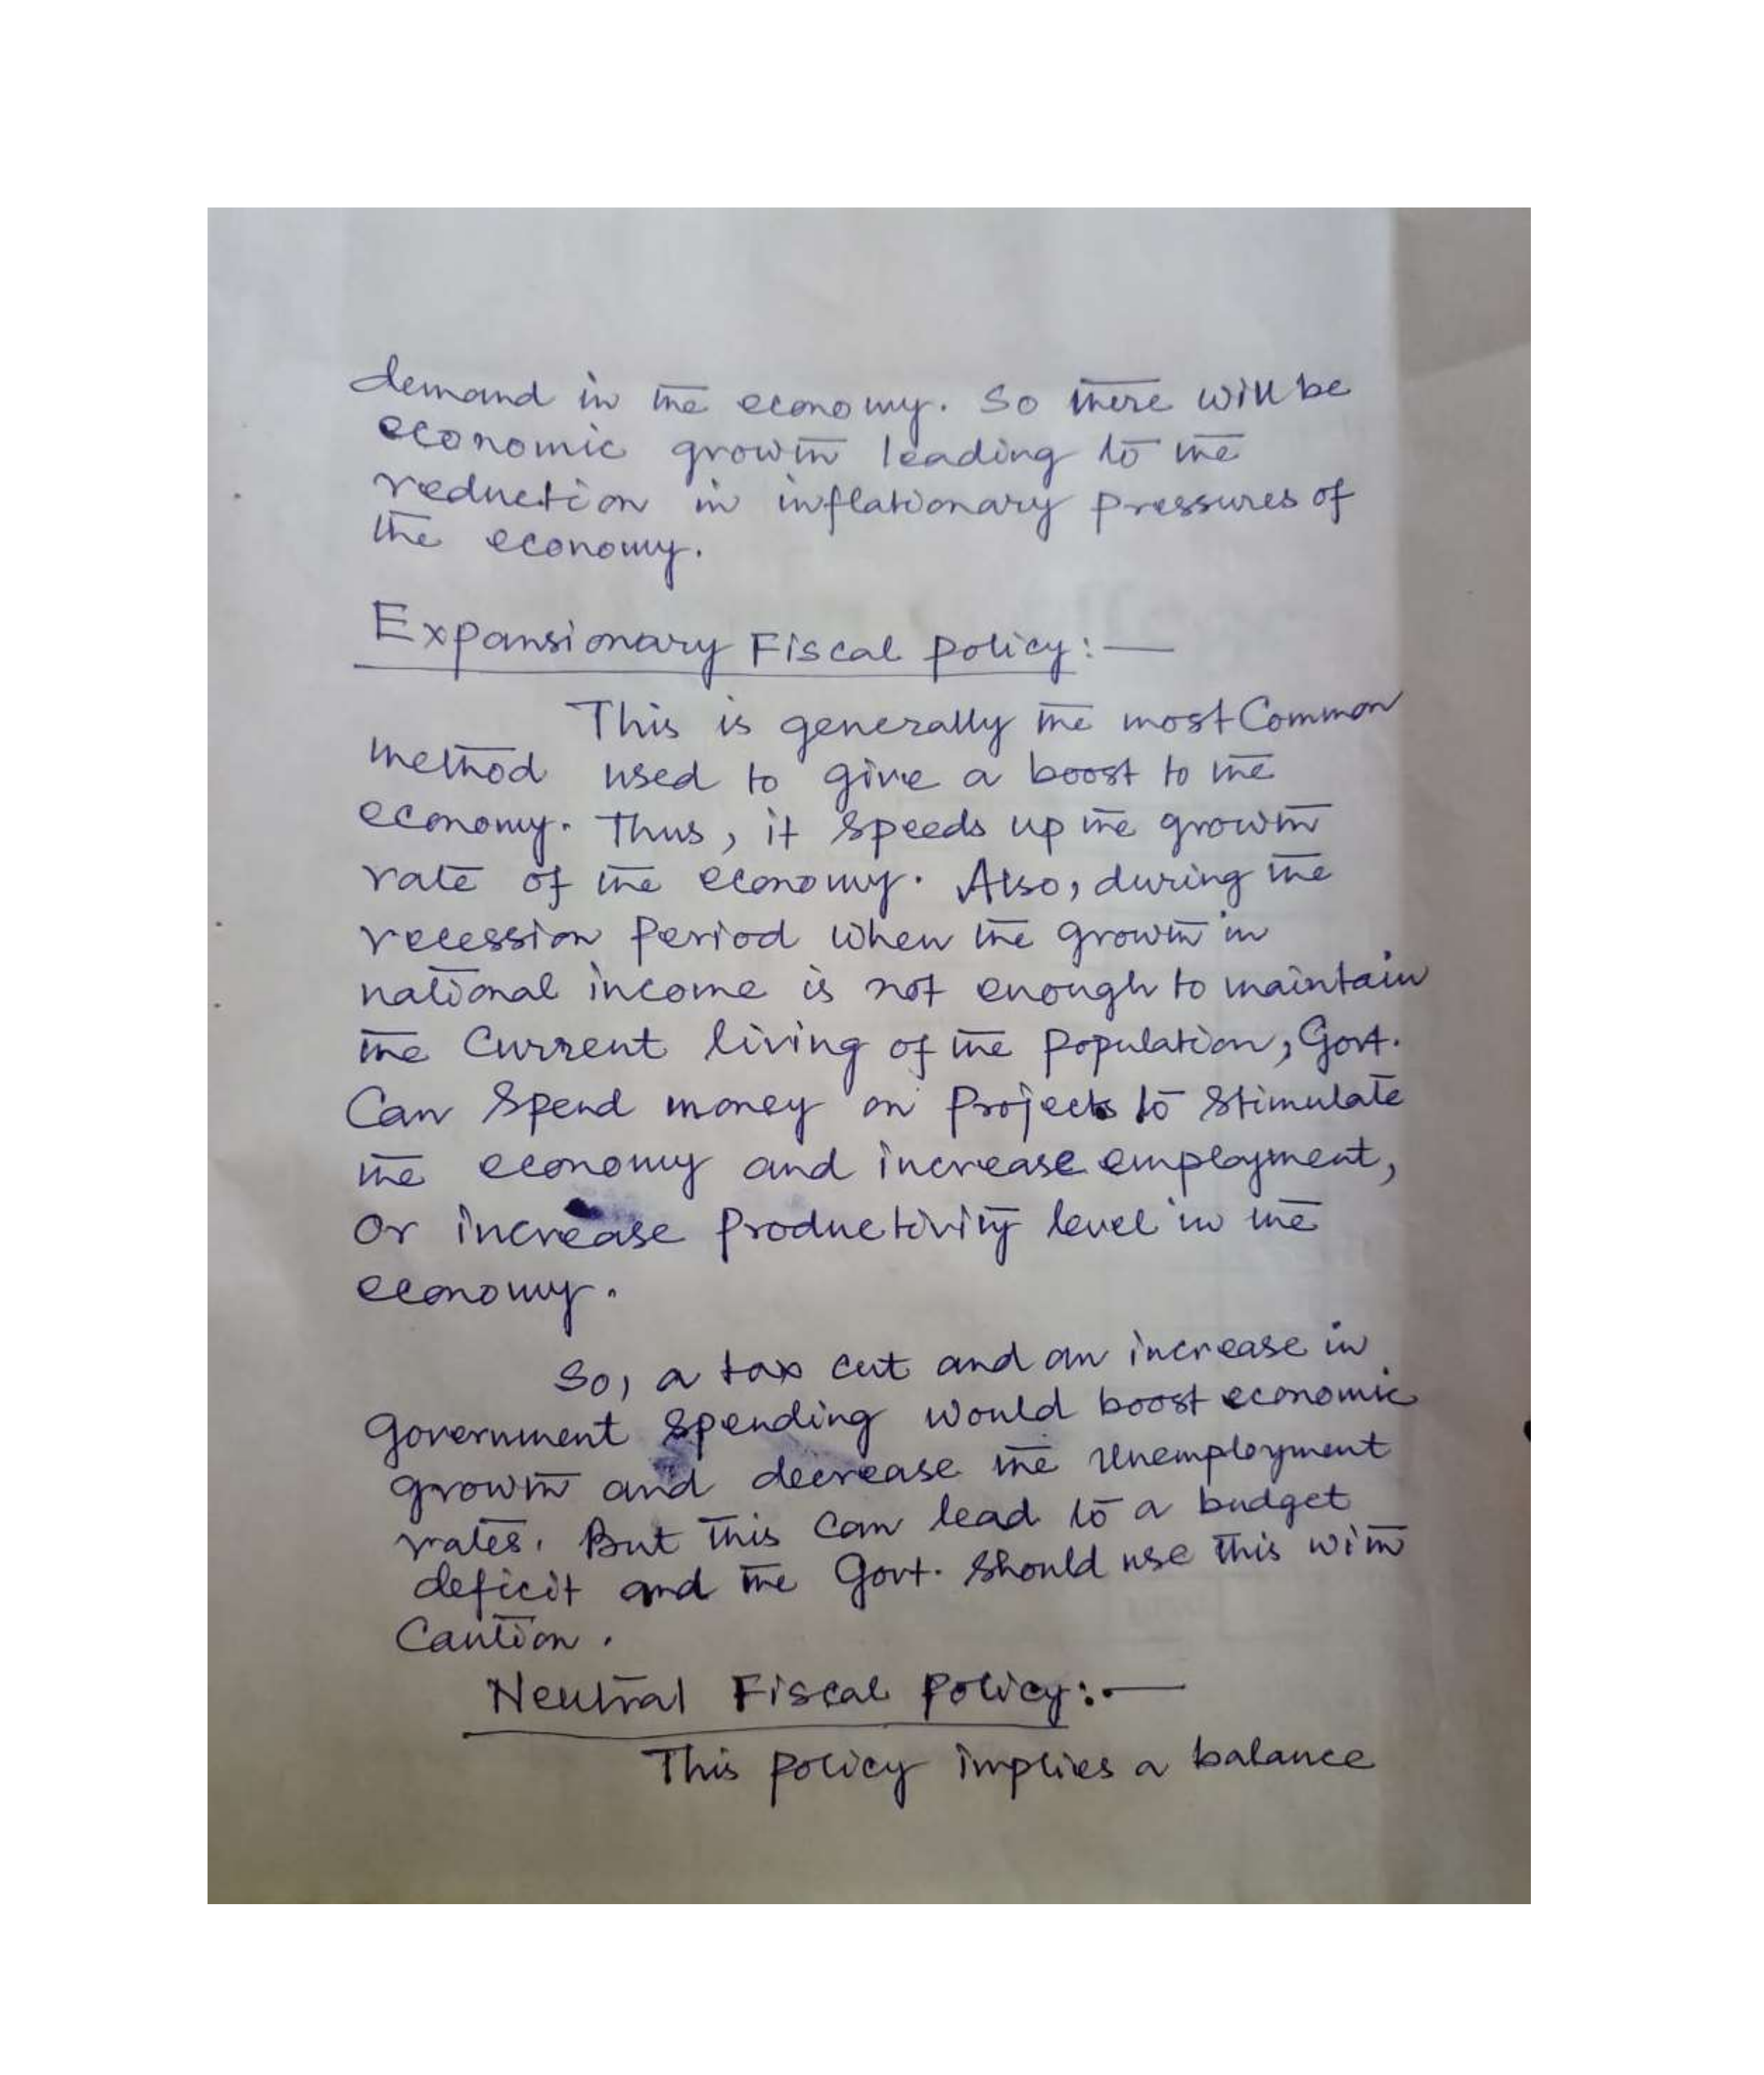 demand in the economy. So there will be
economic growth leading to the
reduction in inflationary pressures of
the economy.
Expansionary Fiscal policy:—
This is generally the most Common
method used to give a boost to the
economy. Thus, it speeds up the growth
rate of the economy. Also, during the
recession period when the growth in
national income is not enough to maintain
the current living of the population, Govt.
Can spend money on projects to stimulate
the economy and increase employment,
or increase productivity level in the
economy.
So, a tax cut and an increase in
Government spending would boost economic
growth and decrease the unemployment
rates. But this can lead to a budget
deficit and the Govt. should use this with
Caution.
Neutral Fiscal policy:—
This policy implies a balance